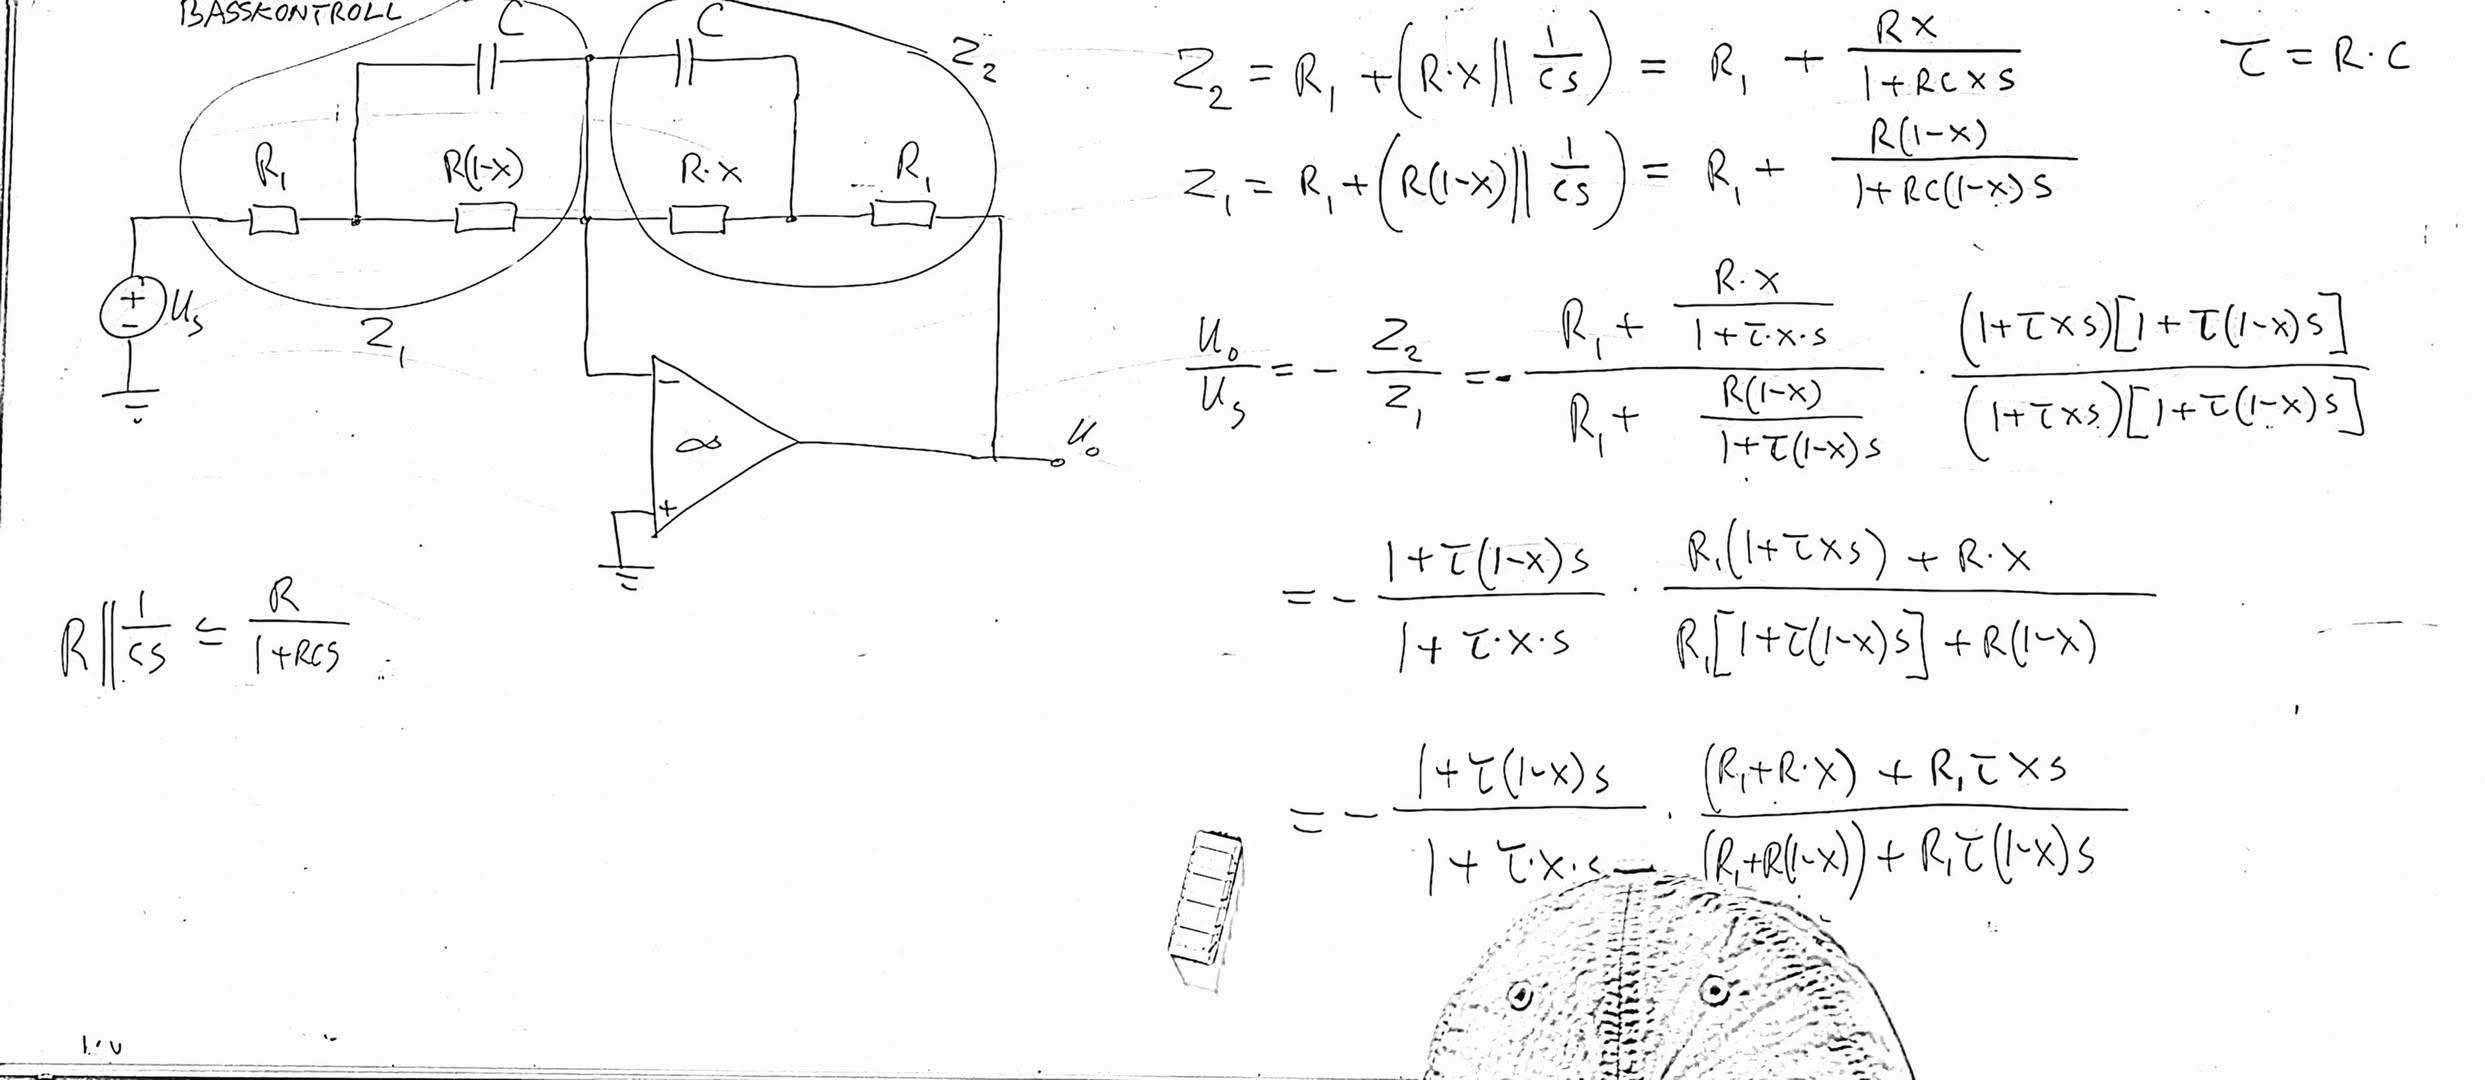 BASSKONTROLL
C
C
Z₂
R₁
R(1-x)
R·x
R₁
+
-
Uₛ
Z₁
-
∞
+
U₀
R || 1/(CS) = R/(1+RCS)
Z₂ = R₁ + (R·x || 1/(CS)) = R₁ + Rx/(1+RCxS)
τ = R·C
Z₁ = R₁ + (R(1-x) || 1/(CS)) = R₁ + R(1-x)/(1+RC(1-x)S)
U₀/Uₛ = - Z₂/Z₁ = - (R₁ + R·x/(1+τ·x·s))/(R₁ + R(1-x)/(1+τ(1-x)s)) · ((1+τxs)[1+τ(1-x)s])/((1+τxs)[1+τ(1-x)s])
= - (1+τ(1-x)s)/(1+τ·x·s) · (R₁(1+τxs) + R·x)/(R₁[1+τ(1-x)s] + R(1-x))
= - (1+τ(1-x)s)/(1+τ·x·s) · ((R₁+R·x) + R₁τxs)/((R₁+R(1-x)) + R₁τ(1-x)s)